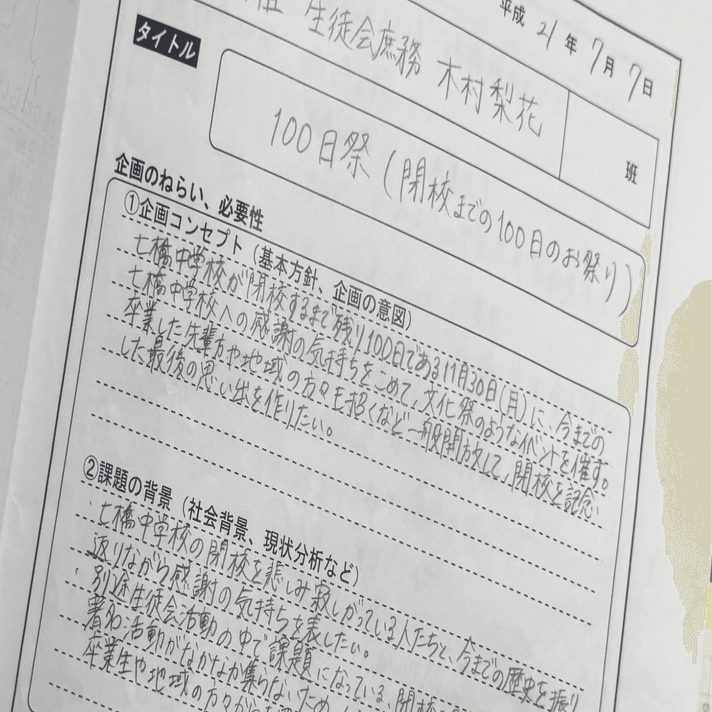 平成 21 年 7 月 7 日
生徒会庶務 木村梨花
班
タイトル
100日祭 (閉校までの100日のお祭り)
企画のねらい、必要性
①企画コンセプト（基本方針、企画の意図）
七橋中学校が閉校するまで残り100日である11月30日(月)に、今までの
七橋中学校への感謝の気持ちをこめて、文化祭のようなイベントを催す。
卒業した先輩方や地域の方々も招くなど一般開放して、閉校を記念
した最後の思い出を作りたい。
②課題の背景（社会背景、現状分析など）
・七橋中学校の閉校を悲しみ寂しがっている人たちと、今までの歴史を振り
返りながら感謝の気持ちを表したい。
・別途生徒会活動の中で課題になっている、閉校
署名活動がなかなか集らないため、
卒業生や地域の方々から